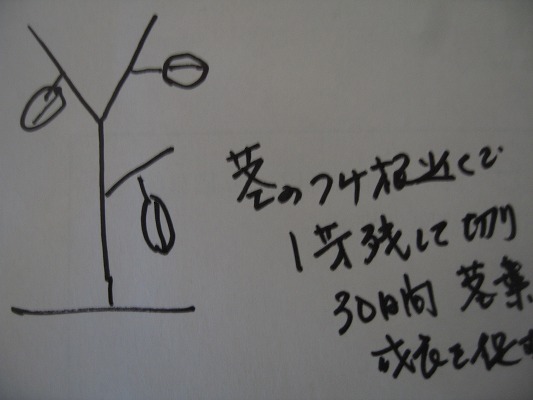 茎のつけ根近くで
1芽残して切り
30日間 落葉
成長を促す